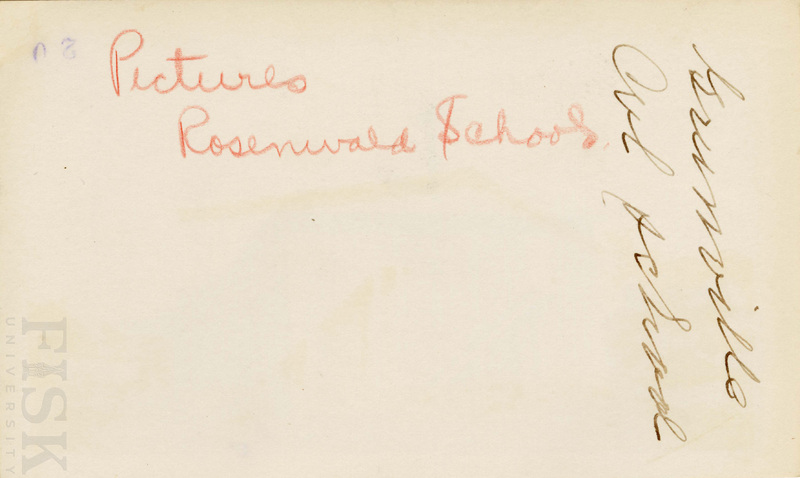 Pictures
Rosenwald School
Greenville
Col School
FISK
UNIVERSITY